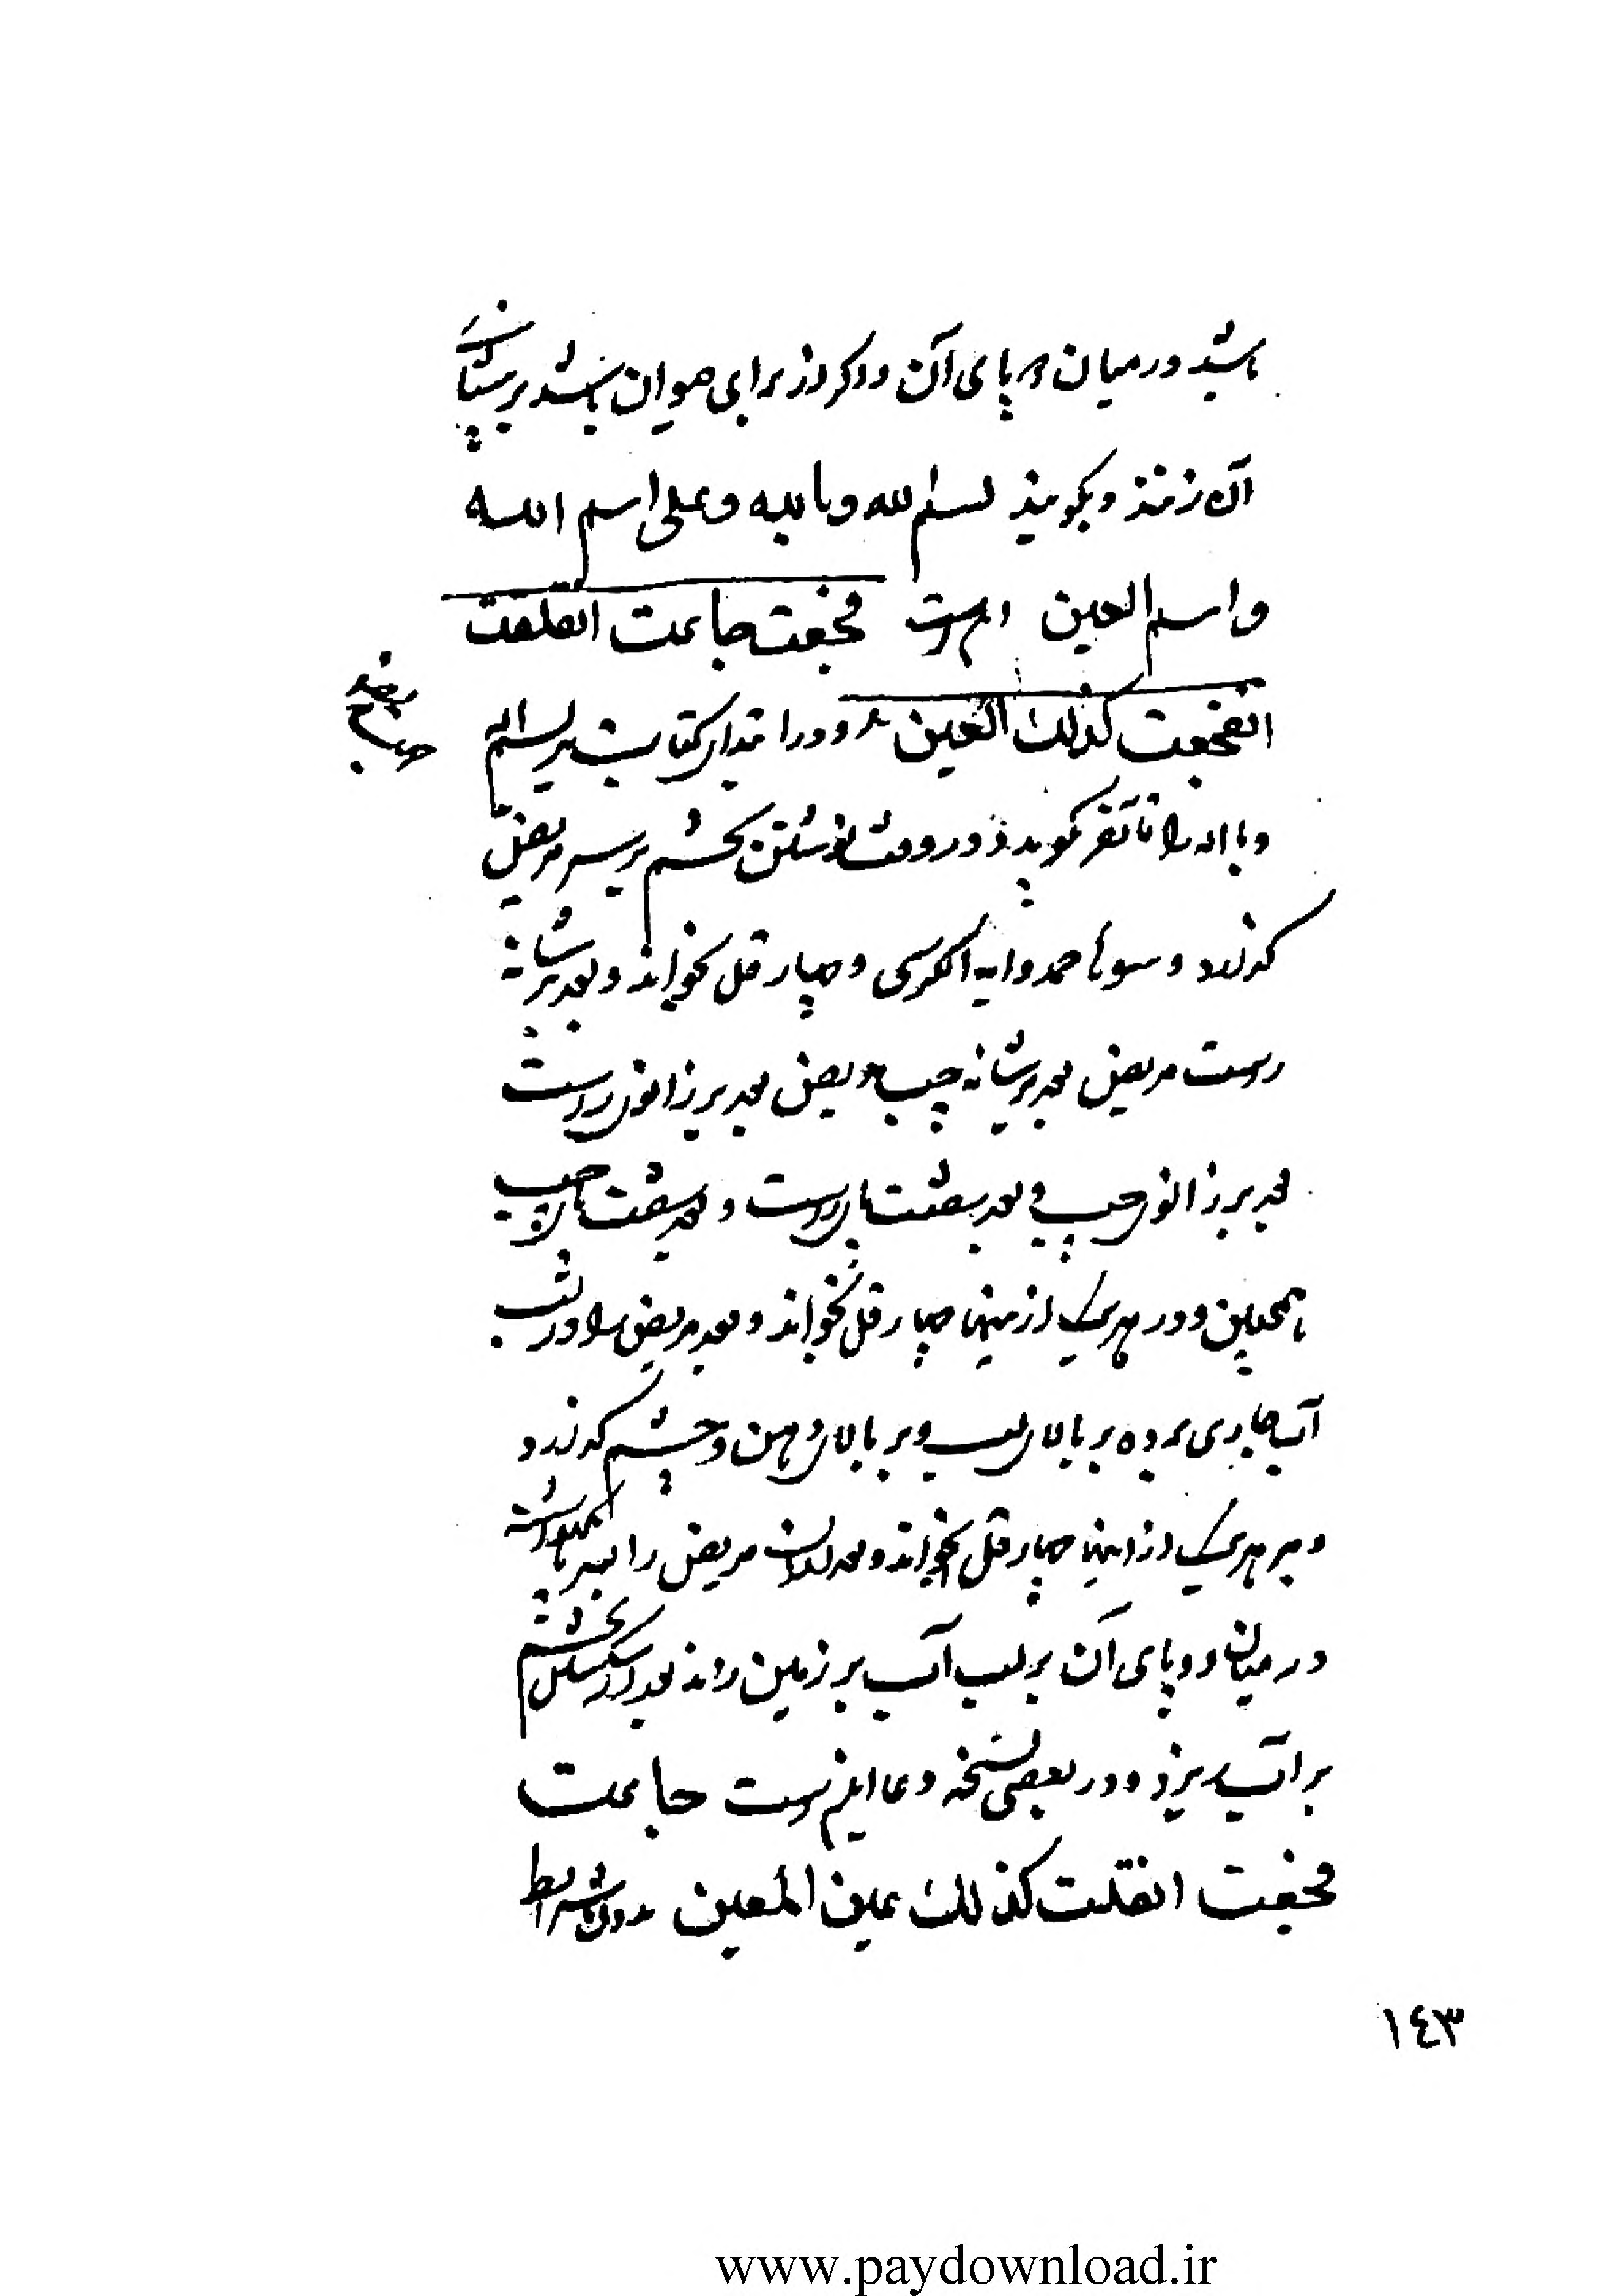 باشد در میان دو پای آن و اگر از برای حیوان باشد بر پیشانی
آن زنند و بگویند بسم الله و بالله و علی اسم الله
و اسم العین این است فخفعت جاعت انفلقت
انفخعت کذلک العین و در ابتدای کتاب بسم الله
و بالله را تا آخر گوید و در وقت شکستن تخم بر سر مریض
گذارد و سوره حمد و آیه الکرسی و چهار قل بخواند و بعد بر شانه
راست مریض بعد بر شانه چپ مریض بعد بر زانوی راست
بعد بر زانوی چپ و بعد پشت پای راست و بعد پشت پای چپ
همچنین و در هر یک از اینها چهار قل بخواند و بعد مریض را در لب
آب جاری برده بر بالای لب و بر بالای دهن و چشم گذارد
و بر هر یک از اینها چهار قل بخواند و بعد از آن مریض را
در میان دو پای آن بر لب آب بر زمین زند بعد از شکستن تخم
بر آب ریزد و در بعضی نسخه دعا این است جاعت
فخفعت انفلت کذلک عین المعین
١٤٣
www.paydownload.ir